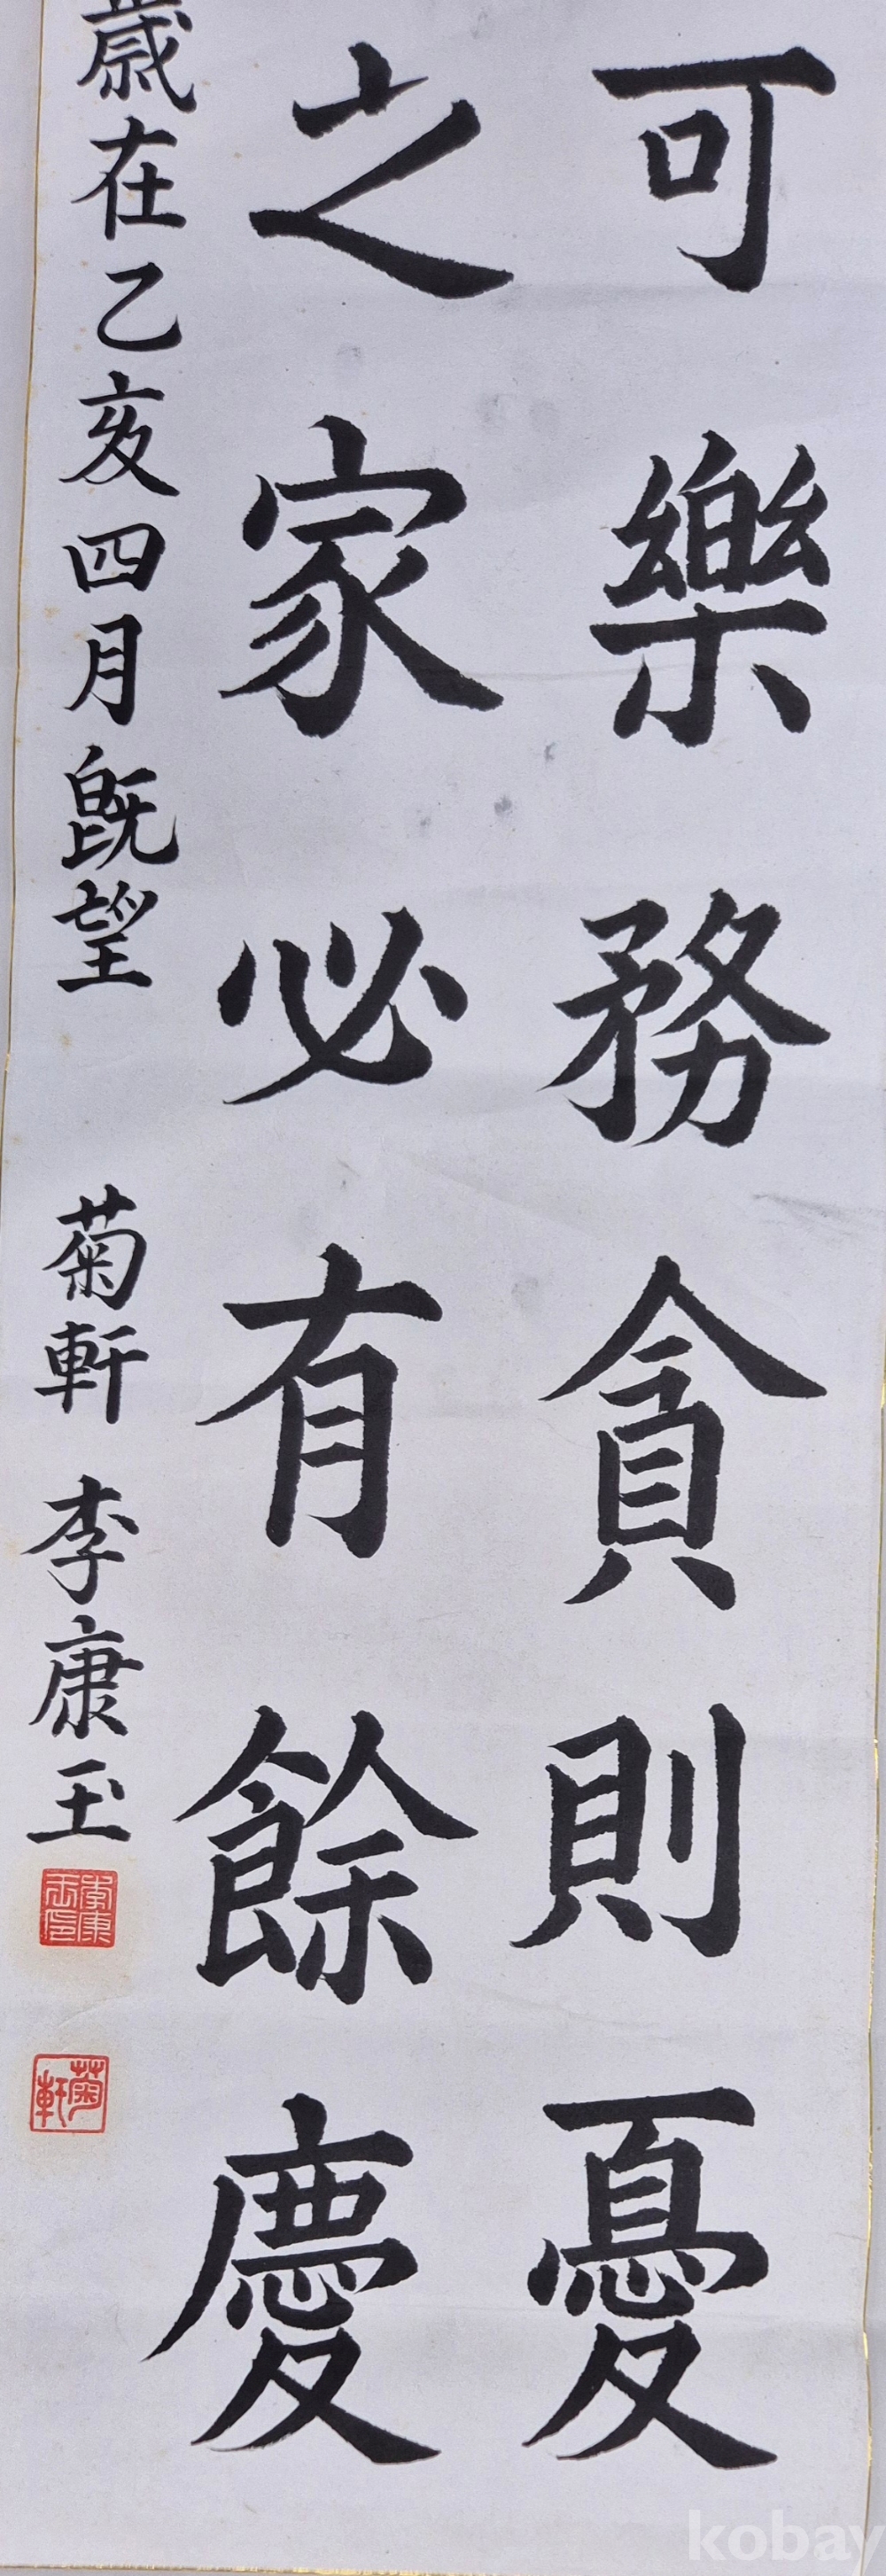 可樂務貪則憂
之家必有餘慶
歲在乙亥四月旣望 菊軒 李康玉
李康玉印
菊軒
kobay